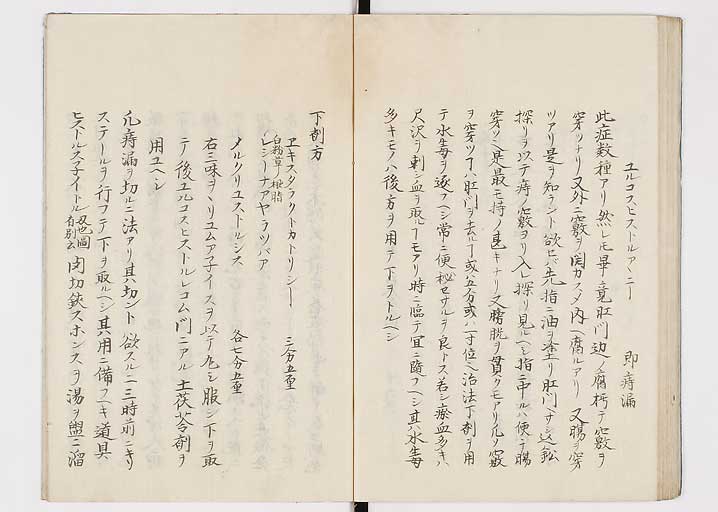 ユルコスヒストルアヽニー　即痔漏
此症数種アリ然レ𪜈畢竟肛門辺ノ腐朽テ竅ヲ
穿ツナリ又外ニ竅ヲ開カスメ内ヘ腐ルアリ又腸ヲ穿
ツアリ是ヲ知ラント欲セバ先指ニ油ヲ塗リ肛門ヘサシ込鈆
探リヲ以テ痔ノ竅ヨリ入レ探リ見ルヘシ指ニ中ルハ便チ腸
穿ツヘ是最モ持ノ甚キナリ又膀胱ヲ貫クモアリ凡ソ竅
ヲ穿ツ丁ハ肛門ヲ去ル丁或ハ五分或ハ一寸位ヘ治法下剤ヲ用
テ水毒ヲ逐フヘシ常ニ便秘セサルヲ良トス若シ瘀血多キハ
尺沢ヲ刺シ血ヲ取ル丁モアリ時ニ臨テ宜ニ随フヘシ其ハ水毒
多キモノハ後方ヲ用テ下ヲトルヘシ
下剤方
ヱキスタラクトカトリシー　三分五重
白粉草ノ根脂
レシーナアヤラツパア
メルクリユストルシス　各七分五重
右三味ヲヽリユムア子イスヲ以テ丸シ服シ下ヲ取
テ後ユルコスヒストルレコム門ニアル土茯苓剤ヲ
用ユヘシ
凡痔漏ヲ切ルニ法アリ其切ント欲スル二三時前ニキリ
ステールヲ行フテ下ヲ取ルヘシ其用ニ備フヘキ道具
ヒストルス子イトル 図有別 肉切鋏スホンスヲ湯ヲ盥ニ溜